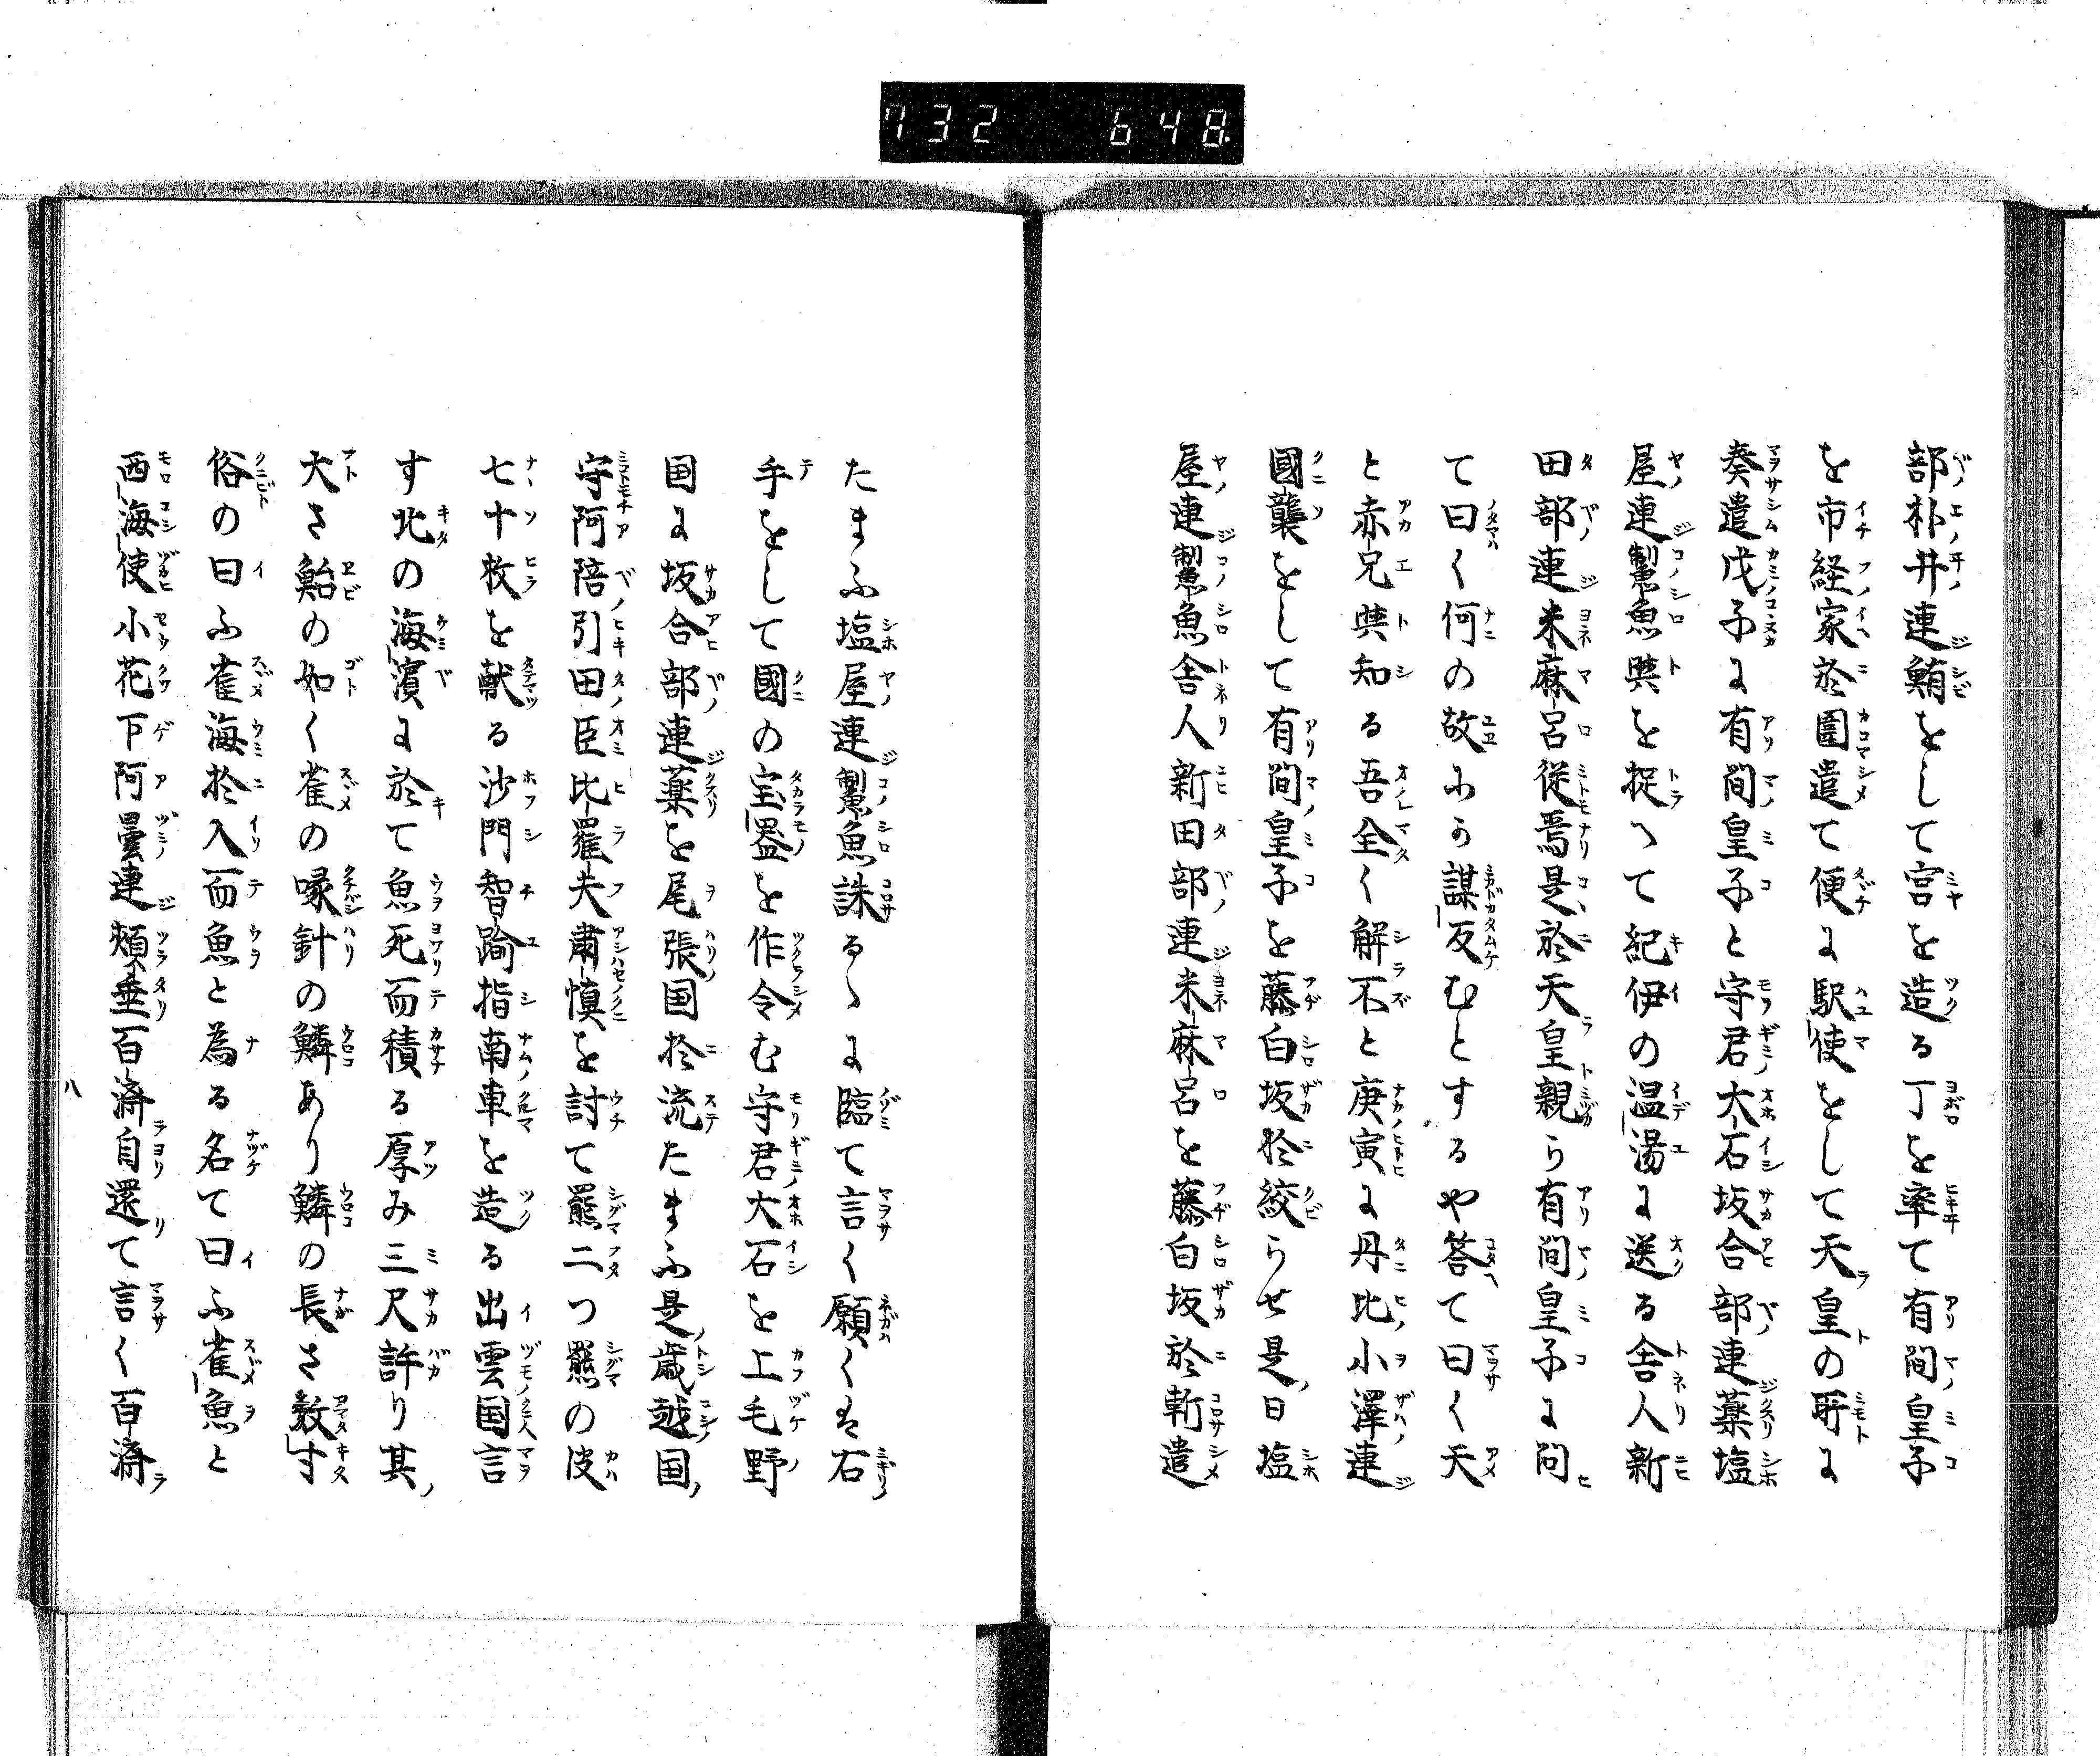 732 648
部朴井連鮪をして宮を造る丁を率て有間皇子
を市経家於圍遣て便に駅使をして天皇の所に
奏遣戊子に有間皇子と守君大石坂合部連薬塩
屋連鰶魚與を捉へて紀伊の温湯に送る舎人新
田部連米麻呂従焉是於天皇親ら有間皇子に問
て曰く何の故にか謀反むとするや答て曰く天
と赤兄與知る吾全く解不と庚寅に丹比小澤連
國襲をして有間皇子を藤白坂於絞らせ是日塩
屋連鰶魚舎人新田部連米麻呂を藤白坂於斬遣
たまふ塩屋連鰶魚誅るゝに臨て言く願くは右
手をして國の宝器を作令む守君大石を上毛野
国に坂合部連薬を尾張国於流たまふ是歳越国
守阿陪引田臣比羅夫粛慎を討て羆二つ羆の皮
七十枚を献る沙門智踰指南車を造る出雲国言
す北の海濱に於て魚死而積る厚み三尺許り其
大さ鮐の如く雀の喙針の鱗あり鱗の長さ数寸
俗の曰ふ雀海於入而魚と為る名て曰ふ雀魚と
西海使小花下阿曇連頬垂百済自還て言く百済
八